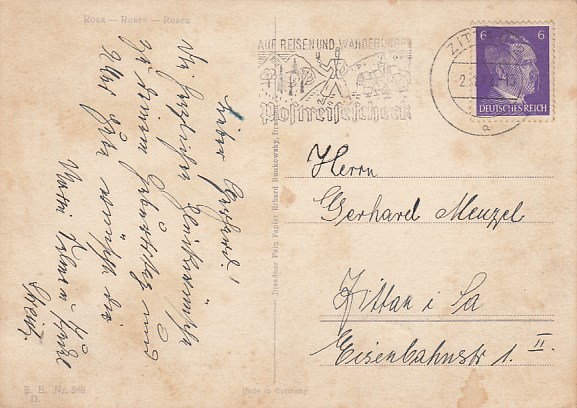 Rosa — Rosen — Roses
Lieber Gerhard!
Die herzlichsten Glückwünsche
zu Deinem Geburtstag und
alles Gute wünscht dir
Tante
B. E. Nr. 388
D.
Made in Germany
Dresdner Fein Papier Erhard Bunkowsky, Dresden
AUF REISEN UND WANDERUNGEN
Postreisescheck
ZITTAU
2.
a
6 6
DEUTSCHES REICH
Herrn
Gerhard Menzel
Zittau i Sa
Eisenbahnstr 1. II.